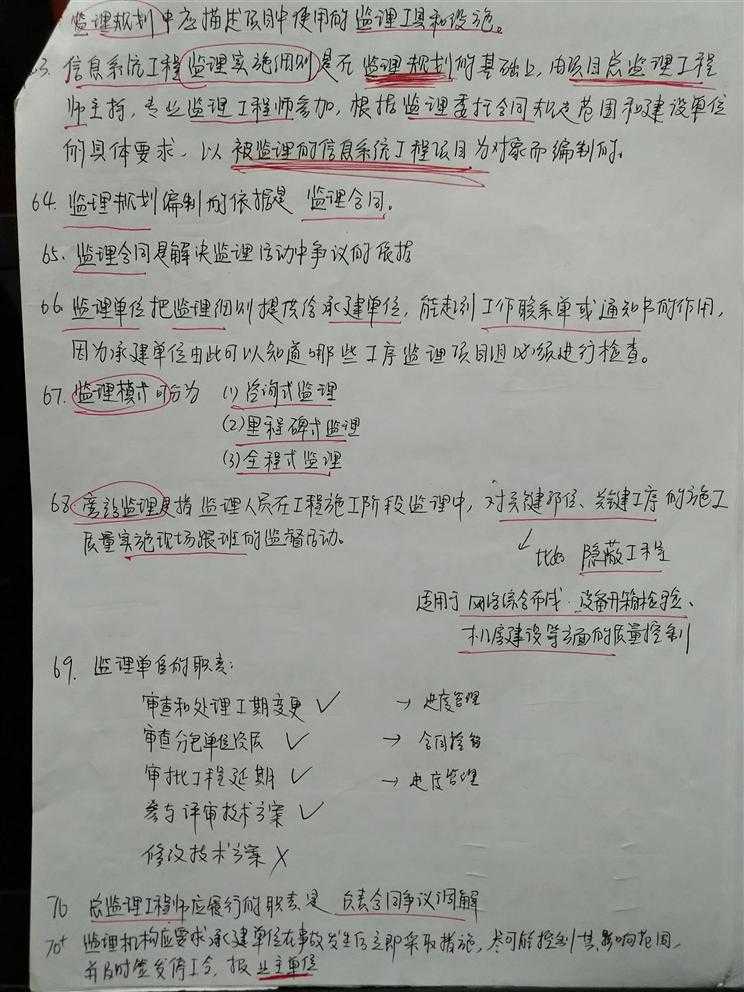 监理规划中应描述项目中使用的监理工具和设施。
63. 信息系统工程监理实施细则是在监理规划的基础上,由项目总监理工程
师主持,专业监理工程师参加,根据监理委托合同规定范围和建设单位
的具体要求,以被监理的信息系统工程项目为对象而编制的。
64. 监理规划编制的依据是 监理合同。
65. 监理合同是解决监理活动中争议的依据
66. 监理单位把监理细则提供给承建单位,能起到工作联系单或通知书的作用,
因为承建单位由此可以知道哪些工序监理项目组必须进行检查。
67. 监理模式可分为 (1) 咨询式监理
(2) 里程碑式监理
(3) 全程式监理
68. 旁站监理是指监理人员在工程施工阶段监理中,对关键部位、关键工序的施工
质量实施现场跟班的监督活动。
比如 隐蔽工程
适用于网络综合布线、设备开箱检验、
机房建设等方面的质量控制
69. 监理单位的职责:
审查和处理工期变更 ✓ → 进度管理
审查分包单位资质 ✓ → 合同管理
审批工程延期 ✓ → 进度管理
参与评审技术方案 ✓
修改技术方案 ✗
70 总监理工程师应履行的职责是 负责合同争议调解
70+ 监理机构应要求承建单位在事故发生后立即采取措施,尽可能控制其影响范围,
并及时签发停工令,报业主单位